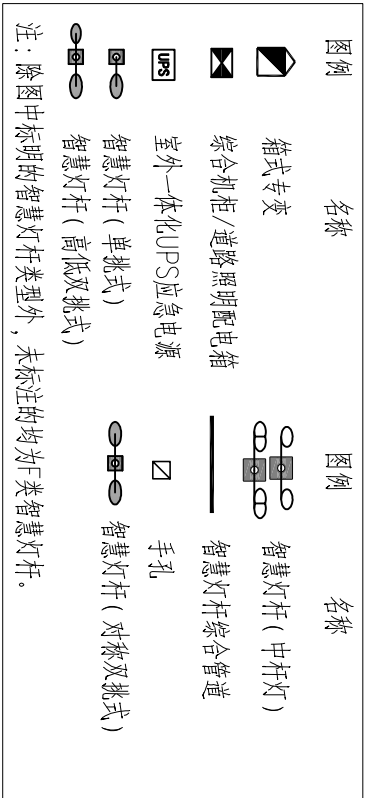 图例 名称 图例 名称
箱式专变 智慧灯杆(中杆灯)
综合机柜/道路照明配电箱 智慧灯杆综合管道
UPS 室外一体化UPS应急电源 手孔
智慧灯杆(单挑式) 智慧灯杆(对称双挑式)
智慧灯杆(高低双挑式)
注:除图中标明的智慧灯杆类型外,未标注的均为F类智慧灯杆。